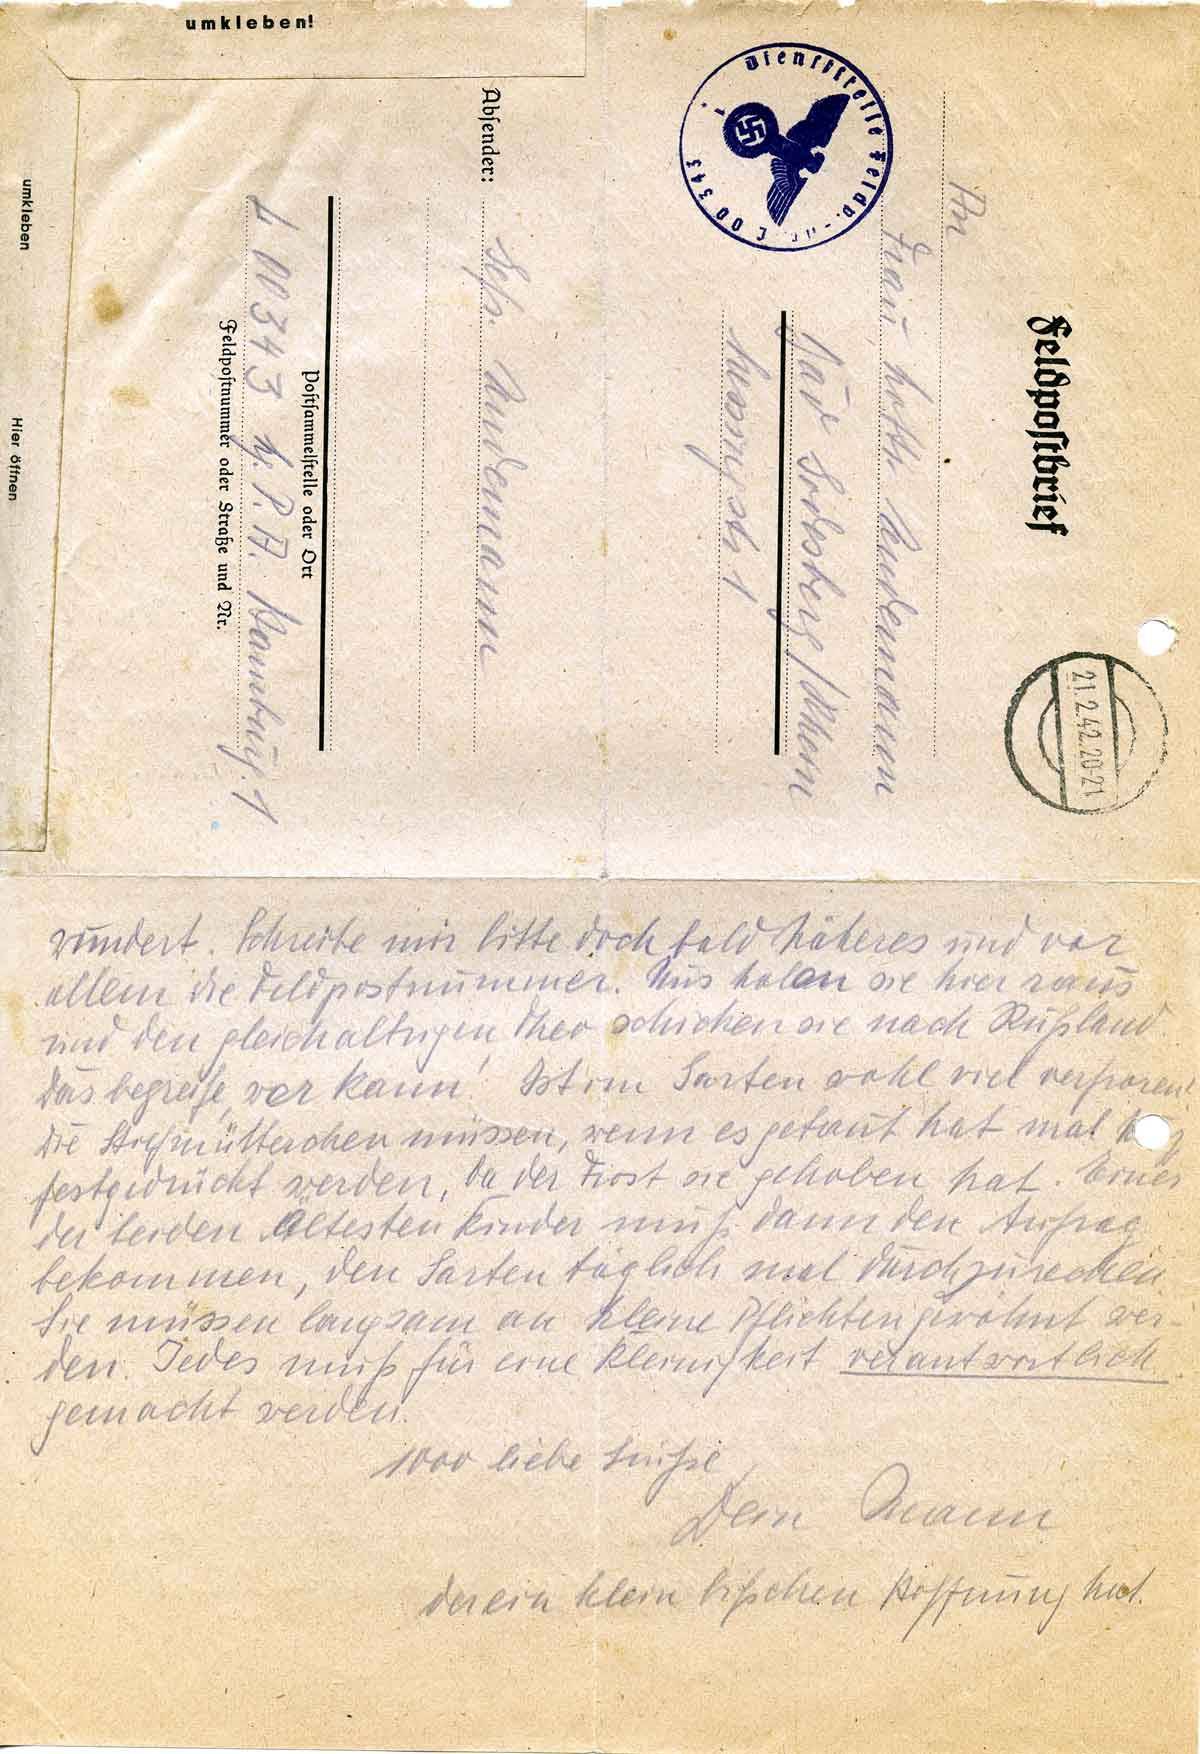 umkleben!
umkleben
Hier öffnen
Feldpostbrief
21.2.42.20-21
Dienststelle Feldp.-nr. L 00 343
An
Frau Lotte
Bad Godesberg/Rhein
Lessingstr 1
Absender:
Gefr.
Postsammelstelle oder Ort
L 00343 L.P.A. Hamburg 1
Feldpostnummer oder Straße und Nr.
wundert. Schreibe mir bitte doch bald Näheres und vor
allem die Feldpostnummer. Uns holen sie hier raus
und den gleichaltrigen Theo schicken sie nach Rußland.
Das begreife, wer kann! Ist im Garten wohl viel erfroren?
Die Stiefmütterchen müssen, wenn es getaut hat mal
festgedrückt werden, da der Frost sie gehoben hat. Eines
der beiden ältesten Kinder muß dann den Auftrag
bekommen, den Garten täglich mal durchzurechen
Sie müssen langsam an kleine Pflichten gewöhnt wer-
den. Jedes muß für eine Kleinigkeit verantwortlich
gemacht werden.
1000 liebe Grüße
Dein Mann
der ein klein bißchen Hoffnung hat.